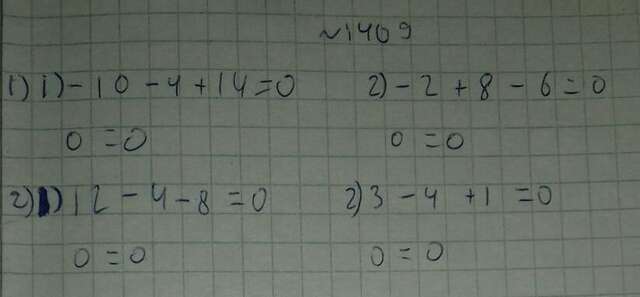 №1409
1) 1) -10 - 4 + 14 = 0 2) -2 + 8 - 6 = 0
0 = 0 0 = 0
2) 1) 12 - 4 - 8 = 0 2) 3 - 4 + 1 = 0
0 = 0 0 = 0